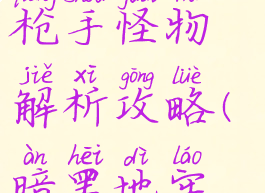 枪手怪物
jiě xī gōng lüè
解析攻略(
àn hēi dì láo
暗黑地牢